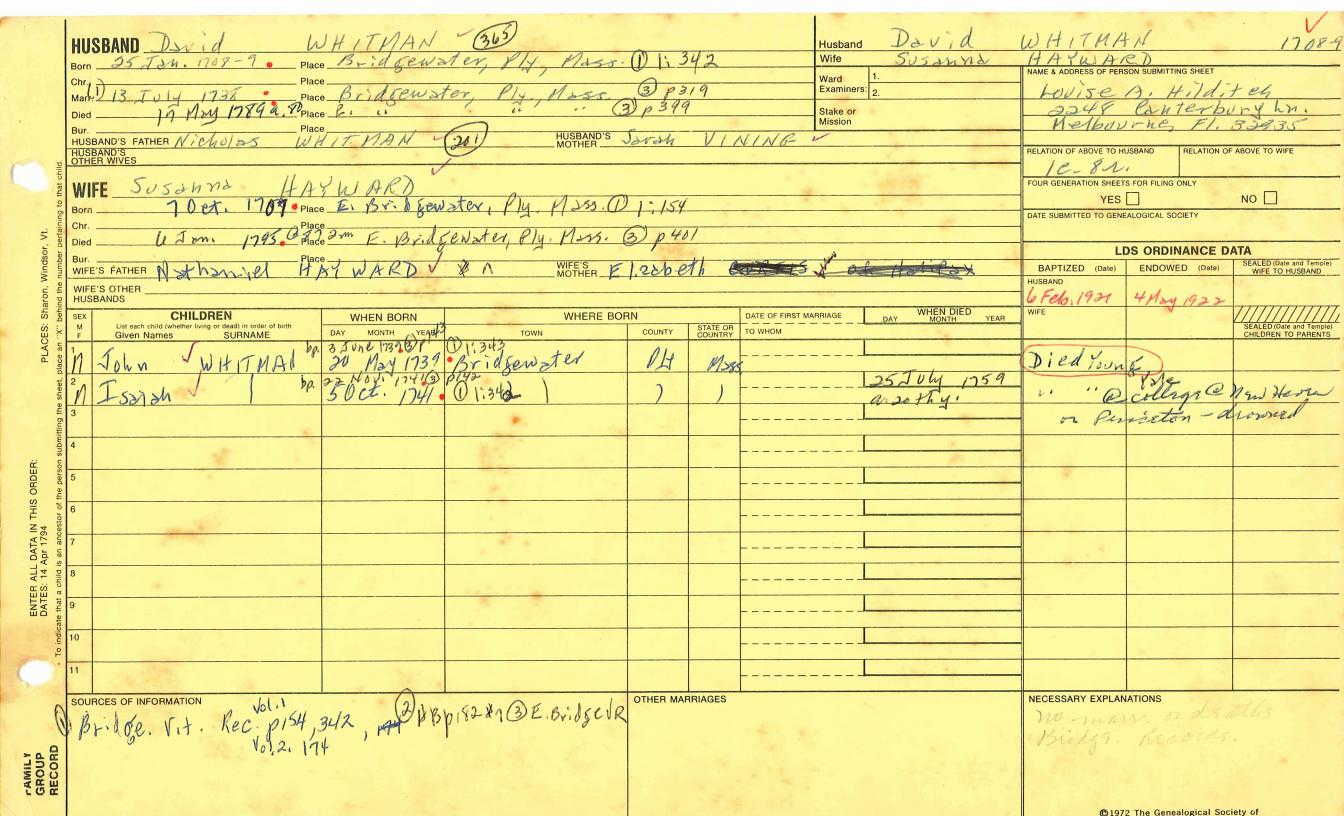 HUSBAND David WHITMAN 365
Born 25 Jan. 1708-9 Place Bridgewater, Ply, Mass. ① 1:342
Chr. Place
Marr. (1) 13 July 1738 Place Bridgewater, Ply, Mass. ③ p319
Died 17 May 1789 Place E. " " ③ p399
Bur. Place
HUSBAND'S FATHER Nicholas WHITMAN 201 HUSBAND'S MOTHER Sarah VINING
HUSBAND'S OTHER WIVES
WIFE Susanna HAYWARD
Born 7 Oct. 1709 Place E. Bridgewater, Ply. Mass. ① 1:154
Chr. Place
Died 6 Jan. 1795 Place E. Bridgewater, Ply. Mass. ③ p401
Bur. Place
WIFE'S FATHER Nathaniel HAYWARD WIFE'S MOTHER Elizabeth
WIFE'S OTHER HUSBANDS
Husband David WHITMAN 1708-9
Wife Susanna HAYWARD
Ward Examiners: 1. 2.
Stake or Mission
NAME & ADDRESS OF PERSON SUBMITTING SHEET
Louise A. Hilditch
2248 Canterbury Ln.
Melbourne, Fl. 32935
RELATION OF ABOVE TO HUSBAND RELATION OF ABOVE TO WIFE
1c-8r.
FOUR GENERATION SHEETS FOR FILING ONLY
YES NO
DATE SUBMITTED TO GENEALOGICAL SOCIETY
LDS ORDINANCE DATA
BAPTIZED (Date) ENDOWED (Date) SEALED (Date and Temple) WIFE TO HUSBAND
HUSBAND
6 Feb. 1921 4 May 1922
WIFE
SEALED (Date and Temple) CHILDREN TO PARENTS
SEX M F CHILDREN WHEN BORN WHERE BORN DATE OF FIRST MARRIAGE WHEN DIED
List each child (whether living or dead) in order of birth
Given Names SURNAME DAY MONTH YEAR TOWN COUNTY STATE OR COUNTRY TO WHOM DAY MONTH YEAR
bp. 3 June 1739 ① 1:343
1 John WHITMAN 20 May 1739 Bridgewater Ply Mass Died Young
bp. 22 Nov. 1741 ③ p142 25 July 1759
2 Isaiah 5 Oct. 1741 ① 1:342 " " @ Yale college @ New Haven
or Princeton - drowned
3
4
5
6
7
8
9
10
11
SOURCES OF INFORMATION
① Bridge. Vit. Rec. Vol.1 p154, 342, ② ③ E. Bridge VR
Vol.2. 174
OTHER MARRIAGES
NECESSARY EXPLANATIONS
no marr. or deaths
Bridge. Records.
©1972 The Genealogical Society of
FAMILY GROUP RECORD
ENTER ALL DATA IN THIS ORDER:
DATES: 14 Apr 1794
PLACES: Sharon, Windsor, Vt.
* To indicate that a child is an ancestor of the person submitting the sheet, place an "X" behind the number pertaining to that child.